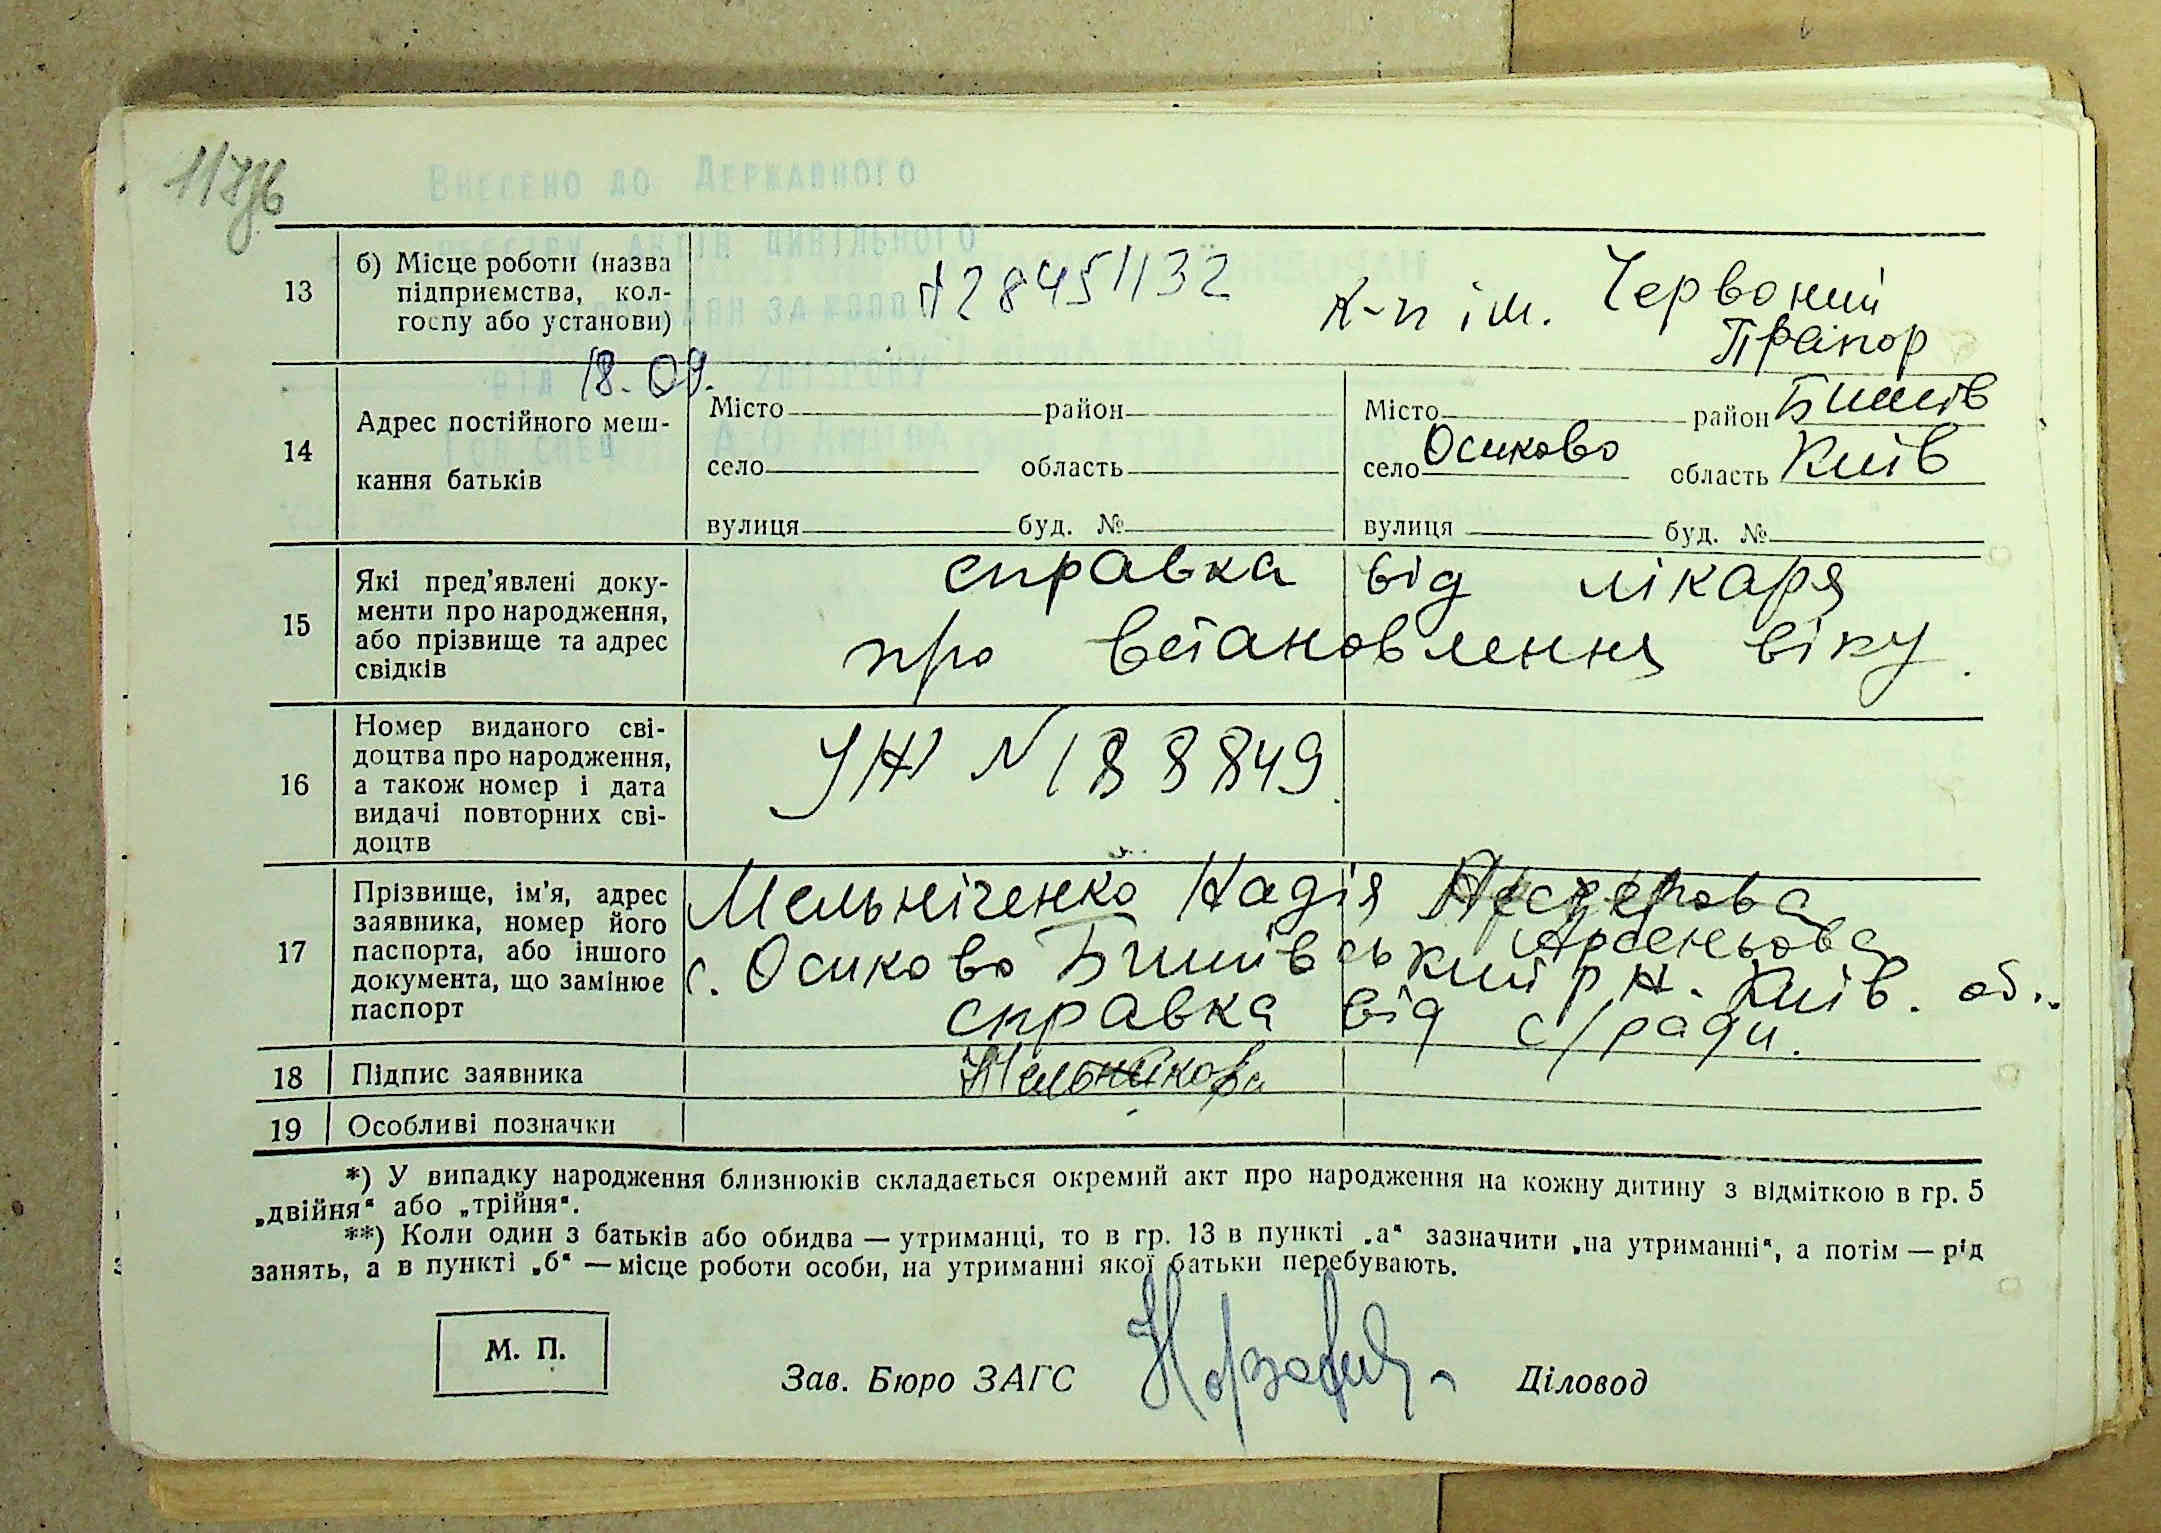 117зв
Внесено до Державного
реєстру актів цивільного
за №00
№28451132
від 18.09. 2015 року
13 б) Місце роботи (назва підприємства, колгоспу або установи)
к-п ім. Червоний
Прапор
14 Адрес постійного мешкання батьків
Місто район
село область
вулиця буд. №
Місто район Бишів
село Осиково область Київ
вулиця буд. №
15 Які пред'явлені документи про народження, або прізвище та адрес свідків
справка від лікаря
про встановлення віку.
16 Номер виданого свідоцтва про народження, а також номер і дата видачі повторних свідоцтв
УЖ №188849
17 Прізвище, ім'я, адрес заявника, номер його паспорта, або іншого документа, що замінює паспорт
Мельніченко Надія
Арсеньова
с. Осиково Бишівський р-н. Київ. об..
справка від с/ради.
18 Підпис заявника
19 Особливі позначки
*) У випадку народження близнюків складається окремий акт про народження на кожну дитину з відміткою в гр. 5
„двійня“ або „трійня“.
**) Коли один з батьків або обидва — утриманці, то в гр. 13 в пункті „а“ зазначити „на утриманні“, а потім — рід
занять, а в пункті „б“ — місце роботи особи, на утриманні якої батьки перебувають.
М. П.
Зав. Бюро ЗАГС
Діловод